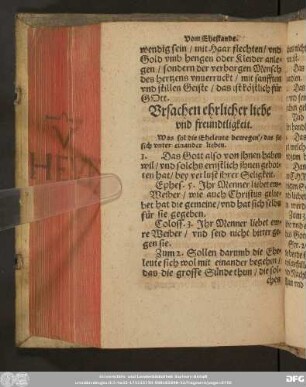 Vom Ehestande.
wendig sein / mit Haar flechten / vnd
Gold vmb hengen oder Kleider anle-
gen / sondern der verborgen Mensch
des hertzens vnuerruckt / mit sanfftem
vnd stillen Geiste / das ist köstlich für
GOtt.
Vrsachen ehrlicher liebe
vnd freundtligkeit.
Was sol die Eheleute bewegen / das sie
sich vnter einander lieben.
1. Das Gott also von ihnen haben
wil / vnd solchs ernstlich ihnen gebo-
ten hat / bey verlust ihrer Seligkeit.
Ephes. 5. Ihr Menner liebet ewre
Weiber / wie auch Christus gelie-
bet hat die gemeine / vnd hat sich selbs
für sie gegeben.
Coloss. 3. Ihr Menner liebet ew-
re Weiber / vnd seid nicht bitter ge-
gen sie.
Zum 2. Sollen darumb die Ehe-
leute sich wol mit einander begehen /
das die grosse Sünde thun / die sol-
chen